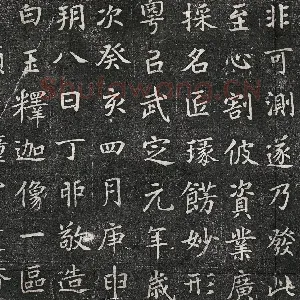 非可測遂乃發此
至心割彼資業廣
採名匠琢餝妙形
粵以武定元年歲
次癸亥四月庚申
朔八日丁卯敬造
白玉釋迦像一區
Shufawang.CN